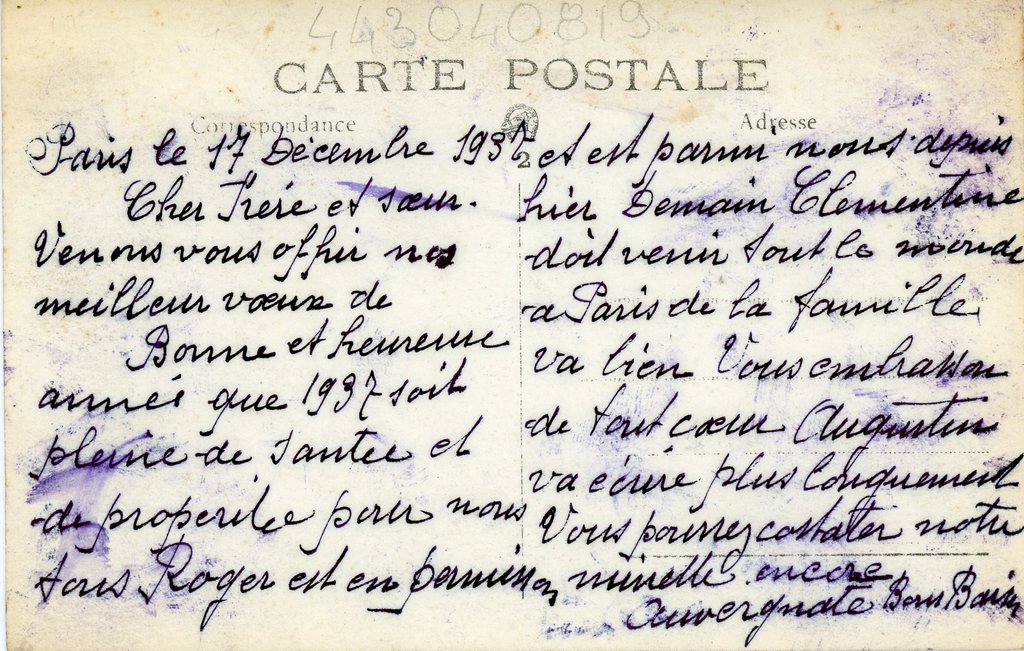 443040819
CARTE POSTALE
Correspondance
Adresse
Paris le 17 Décembre 1937
Cher Frére et sœur.
Venons vous offrir nos
meilleur vœux de
Bonne et heureuse
année que 1937 soit
pleine de santee et
de properitee pour nous
tous Roger est en permission
et est parmi nous depuis
hier Demain Clementine
doit venir tout le monde
a Paris de la famille
va bien Vous embrasson
de tout cœur Augustin
va écrire plus longuement
Vous pourrez costater notre
minette encore
auvergnate Bons Baisers